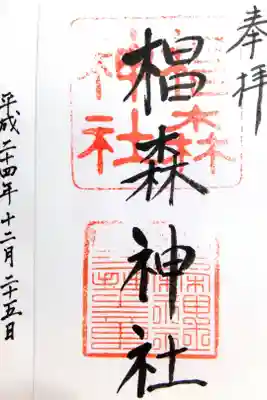 奉拝
椙森
神社
椙森神社
平成二十四年十二月二十五日